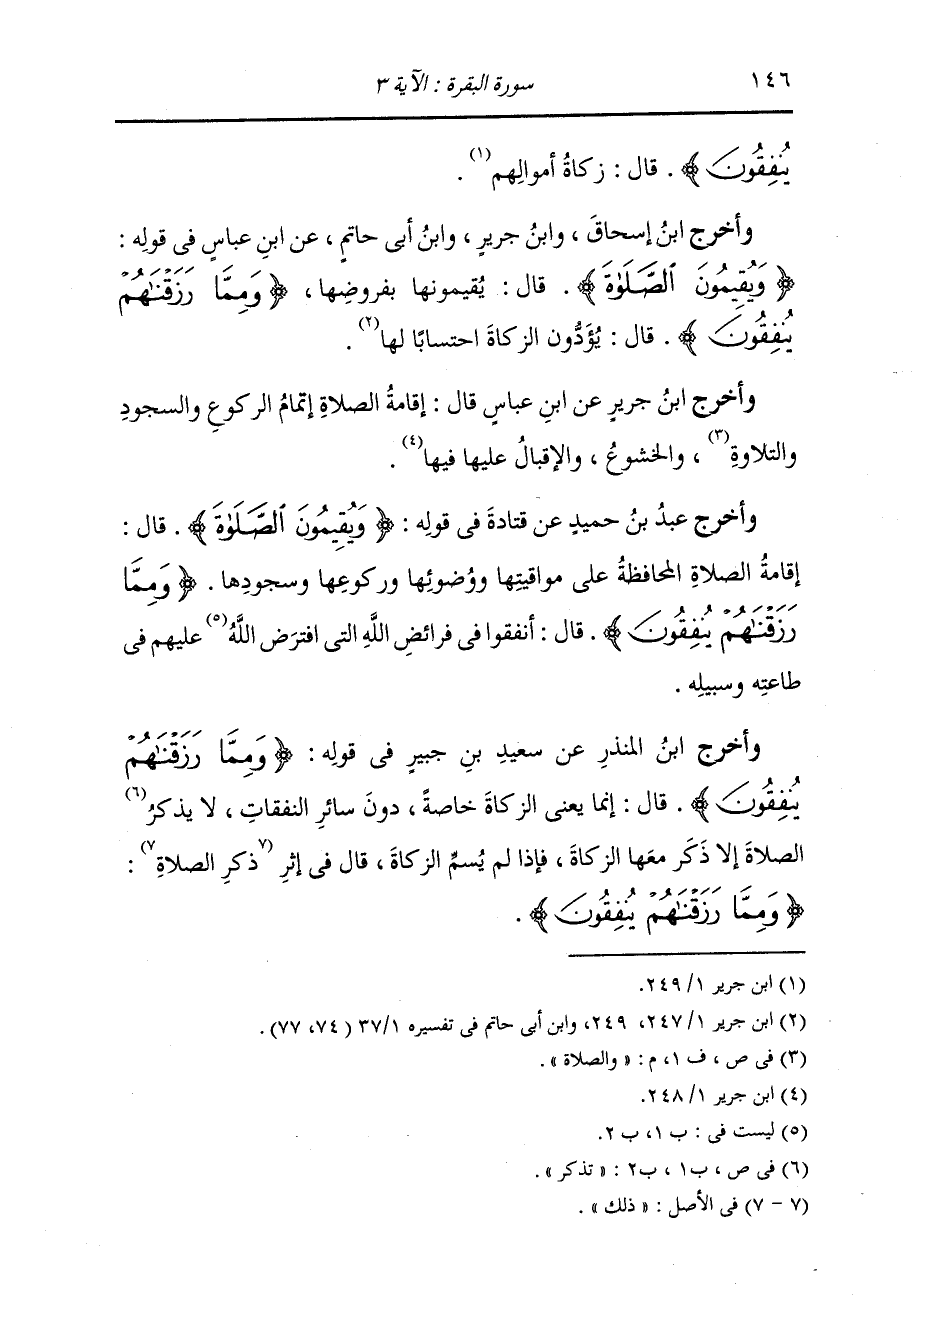 ١٤٦
سورة البقرة : الآية ٣
يُنفِقُونَ﴾ . قال : زكاةُ أموالِهم(١) .
وأخرج ابنُ إسحاقَ ، وابنُ جريرٍ ، وابنُ أبى حاتمٍ ، عن ابنِ عباسٍ فى قولِه :
﴿وَيُقِيمُونَ ٱلصَّلَوٰةَ﴾ . قال : يُقيمونها بفروضِها ، ﴿وَمِمَّا رَزَقْنَٰهُمْ
يُنفِقُونَ﴾ . قال : يُؤَدُّون الزكاةَ احتسابًا لها(٢) .
وأخرج ابنُ جريرٍ عن ابنِ عباسٍ قال : إقامةُ الصلاةِ إتمامُ الركوعِ والسجودِ
والتلاوةِ(٣) ، والخشوعُ ، والإقبالُ عليها فيها(٤) .
وأخرج عبدُ بنُ حميدٍ عن قتادةَ فى قولِه : ﴿وَيُقِيمُونَ ٱلصَّلَوٰةَ﴾ . قال :
إقامةُ الصلاةِ المحافظةُ على مواقيتِها ووُضوئِها وركوعِها وسجودِها . ﴿وَمِمَّا
رَزَقْنَٰهُمْ يُنفِقُونَ﴾ . قال : أنفقوا فى فرائضِ اللَّهِ التى افترَض اللَّهُ(٥) عليهم فى
طاعتِه وسبيلِه .
وأخرج ابنُ المنذرِ عن سعيدِ بنِ جبيرٍ فى قولِه : ﴿وَمِمَّا رَزَقْنَٰهُمْ
يُنفِقُونَ﴾ . قال : إنما يعنى الزكاةَ خاصةً ، دونَ سائرِ النفقاتِ ، لا يذكرُ(٦)
الصلاةَ إلا ذَكَر معَها الزكاةَ ، فإذا لم يُسمِّ الزكاةَ ، قال فى إثرِ (٧ذكرِ الصلاةِ٧) :
﴿وَمِمَّا رَزَقْنَٰهُمْ يُنفِقُونَ﴾ .
(١) ابن جرير ١/ ٢٤٩.
(٢) ابن جرير ١/ ٢٤٧، ٢٤٩، وابن أبى حاتم فى تفسيره ٣٧/١ (٧٤، ٧٧) .
(٣) فى ص ، ف ١، م : « والصلاة » .
(٤) ابن جرير ١/ ٢٤٨.
(٥) ليست فى : ب ١، ب ٢.
(٦) فى ص ، ب١ ، ب٢ : « تذكر » .
(٧ - ٧) فى الأصل : « ذلك » .